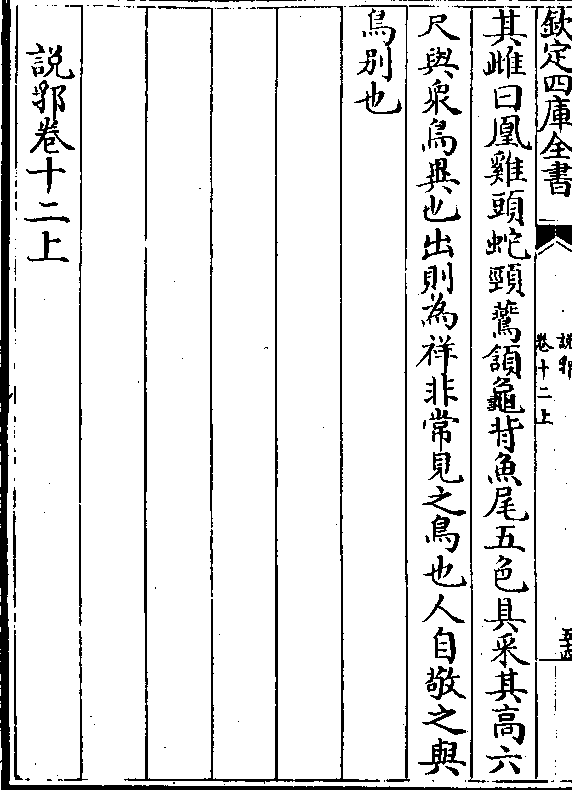 欽定四庫全書
說郛
卷十二上
其雌曰凰雞頭蛇頸鷰頷龜背魚尾五色具采其高六
尺與衆鳥異也出則為祥非常見之鳥也人自敬之與
鳥别也
說郛卷十二上